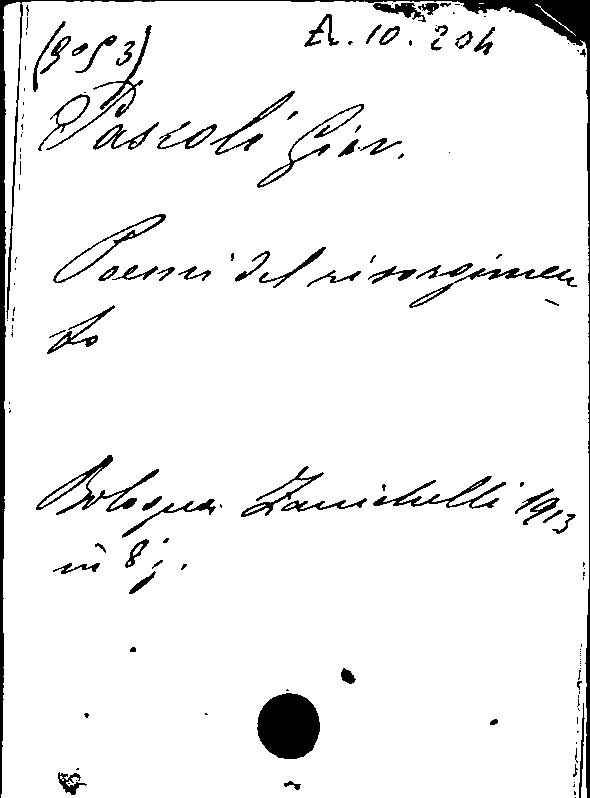 (3053) A. 10. 204
Pascoli Giov.
Poemi del risorgimen-
to
Bologna Zanichelli 1913
in 8°